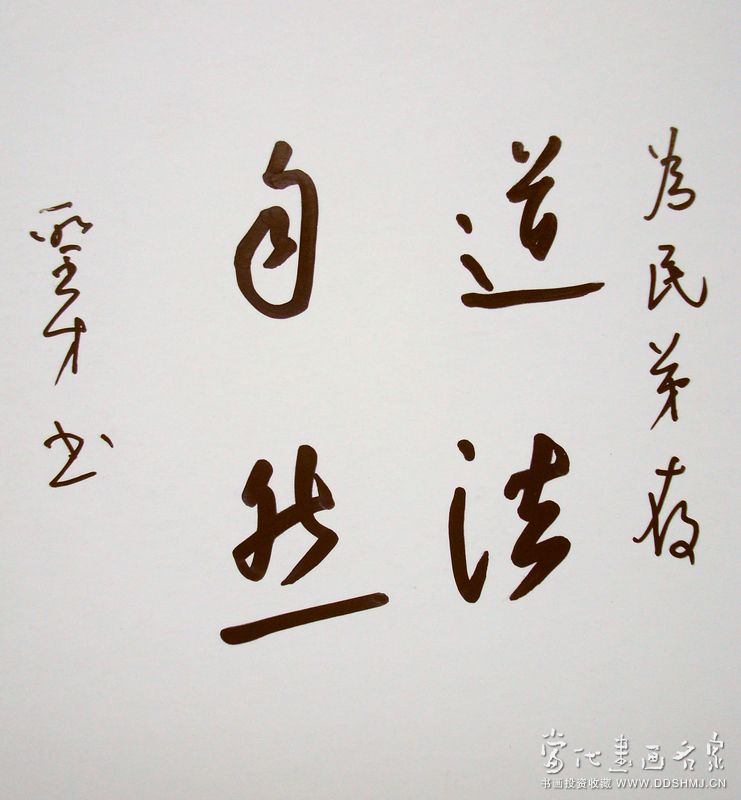 為民弟
道法
自然
才书
當代書画名家
书画投资收藏 WWW.DDSHMJ.CN